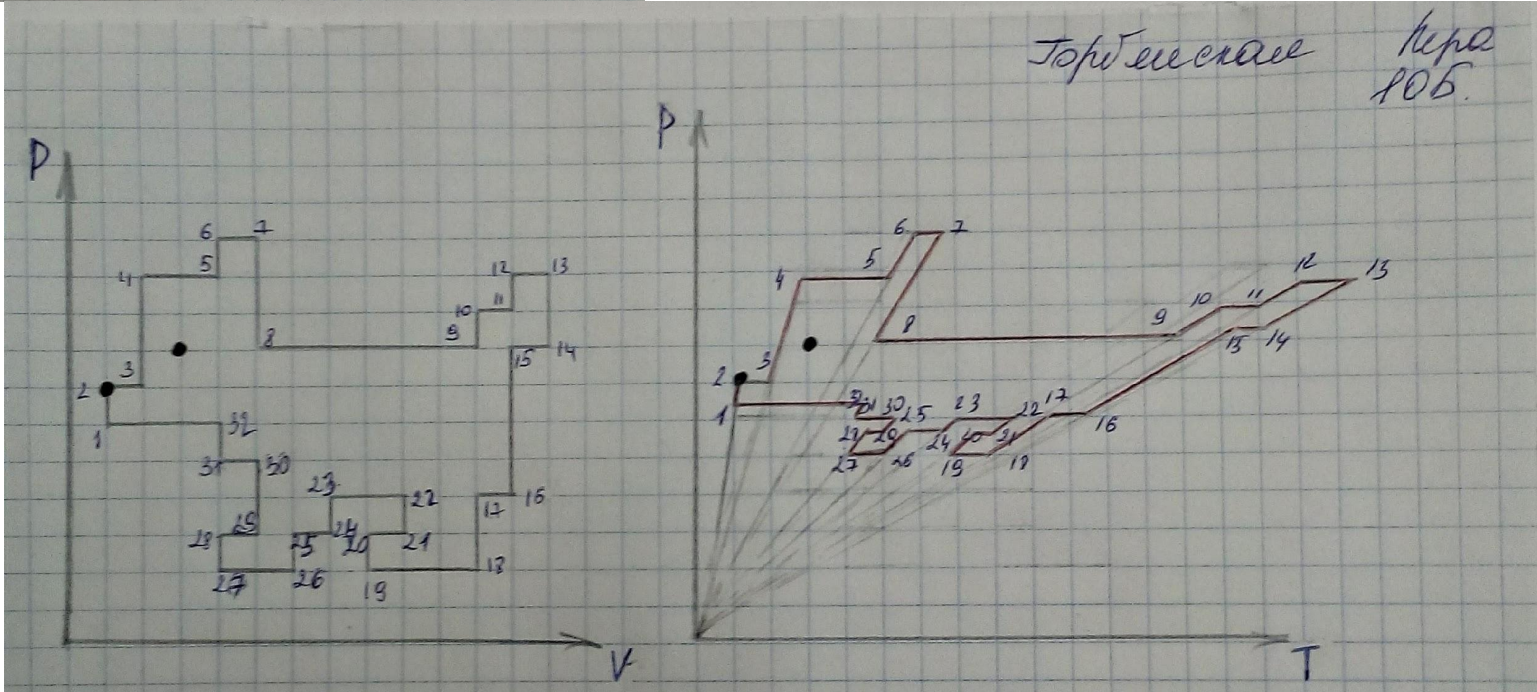 Кира
10Б.
P
6 7
4 5
12 13
10 11
8 9
15 14
2 3
1 32
31 30
23 22
17 16
28 29 25 24 20 21
27 26 19 18
V
P
6 7
4 5
12 13
10 11
8 9
15 14
2 3
1 31 30 25 23 22 17 16
28 29 24 20 21
27 26 19 18
T